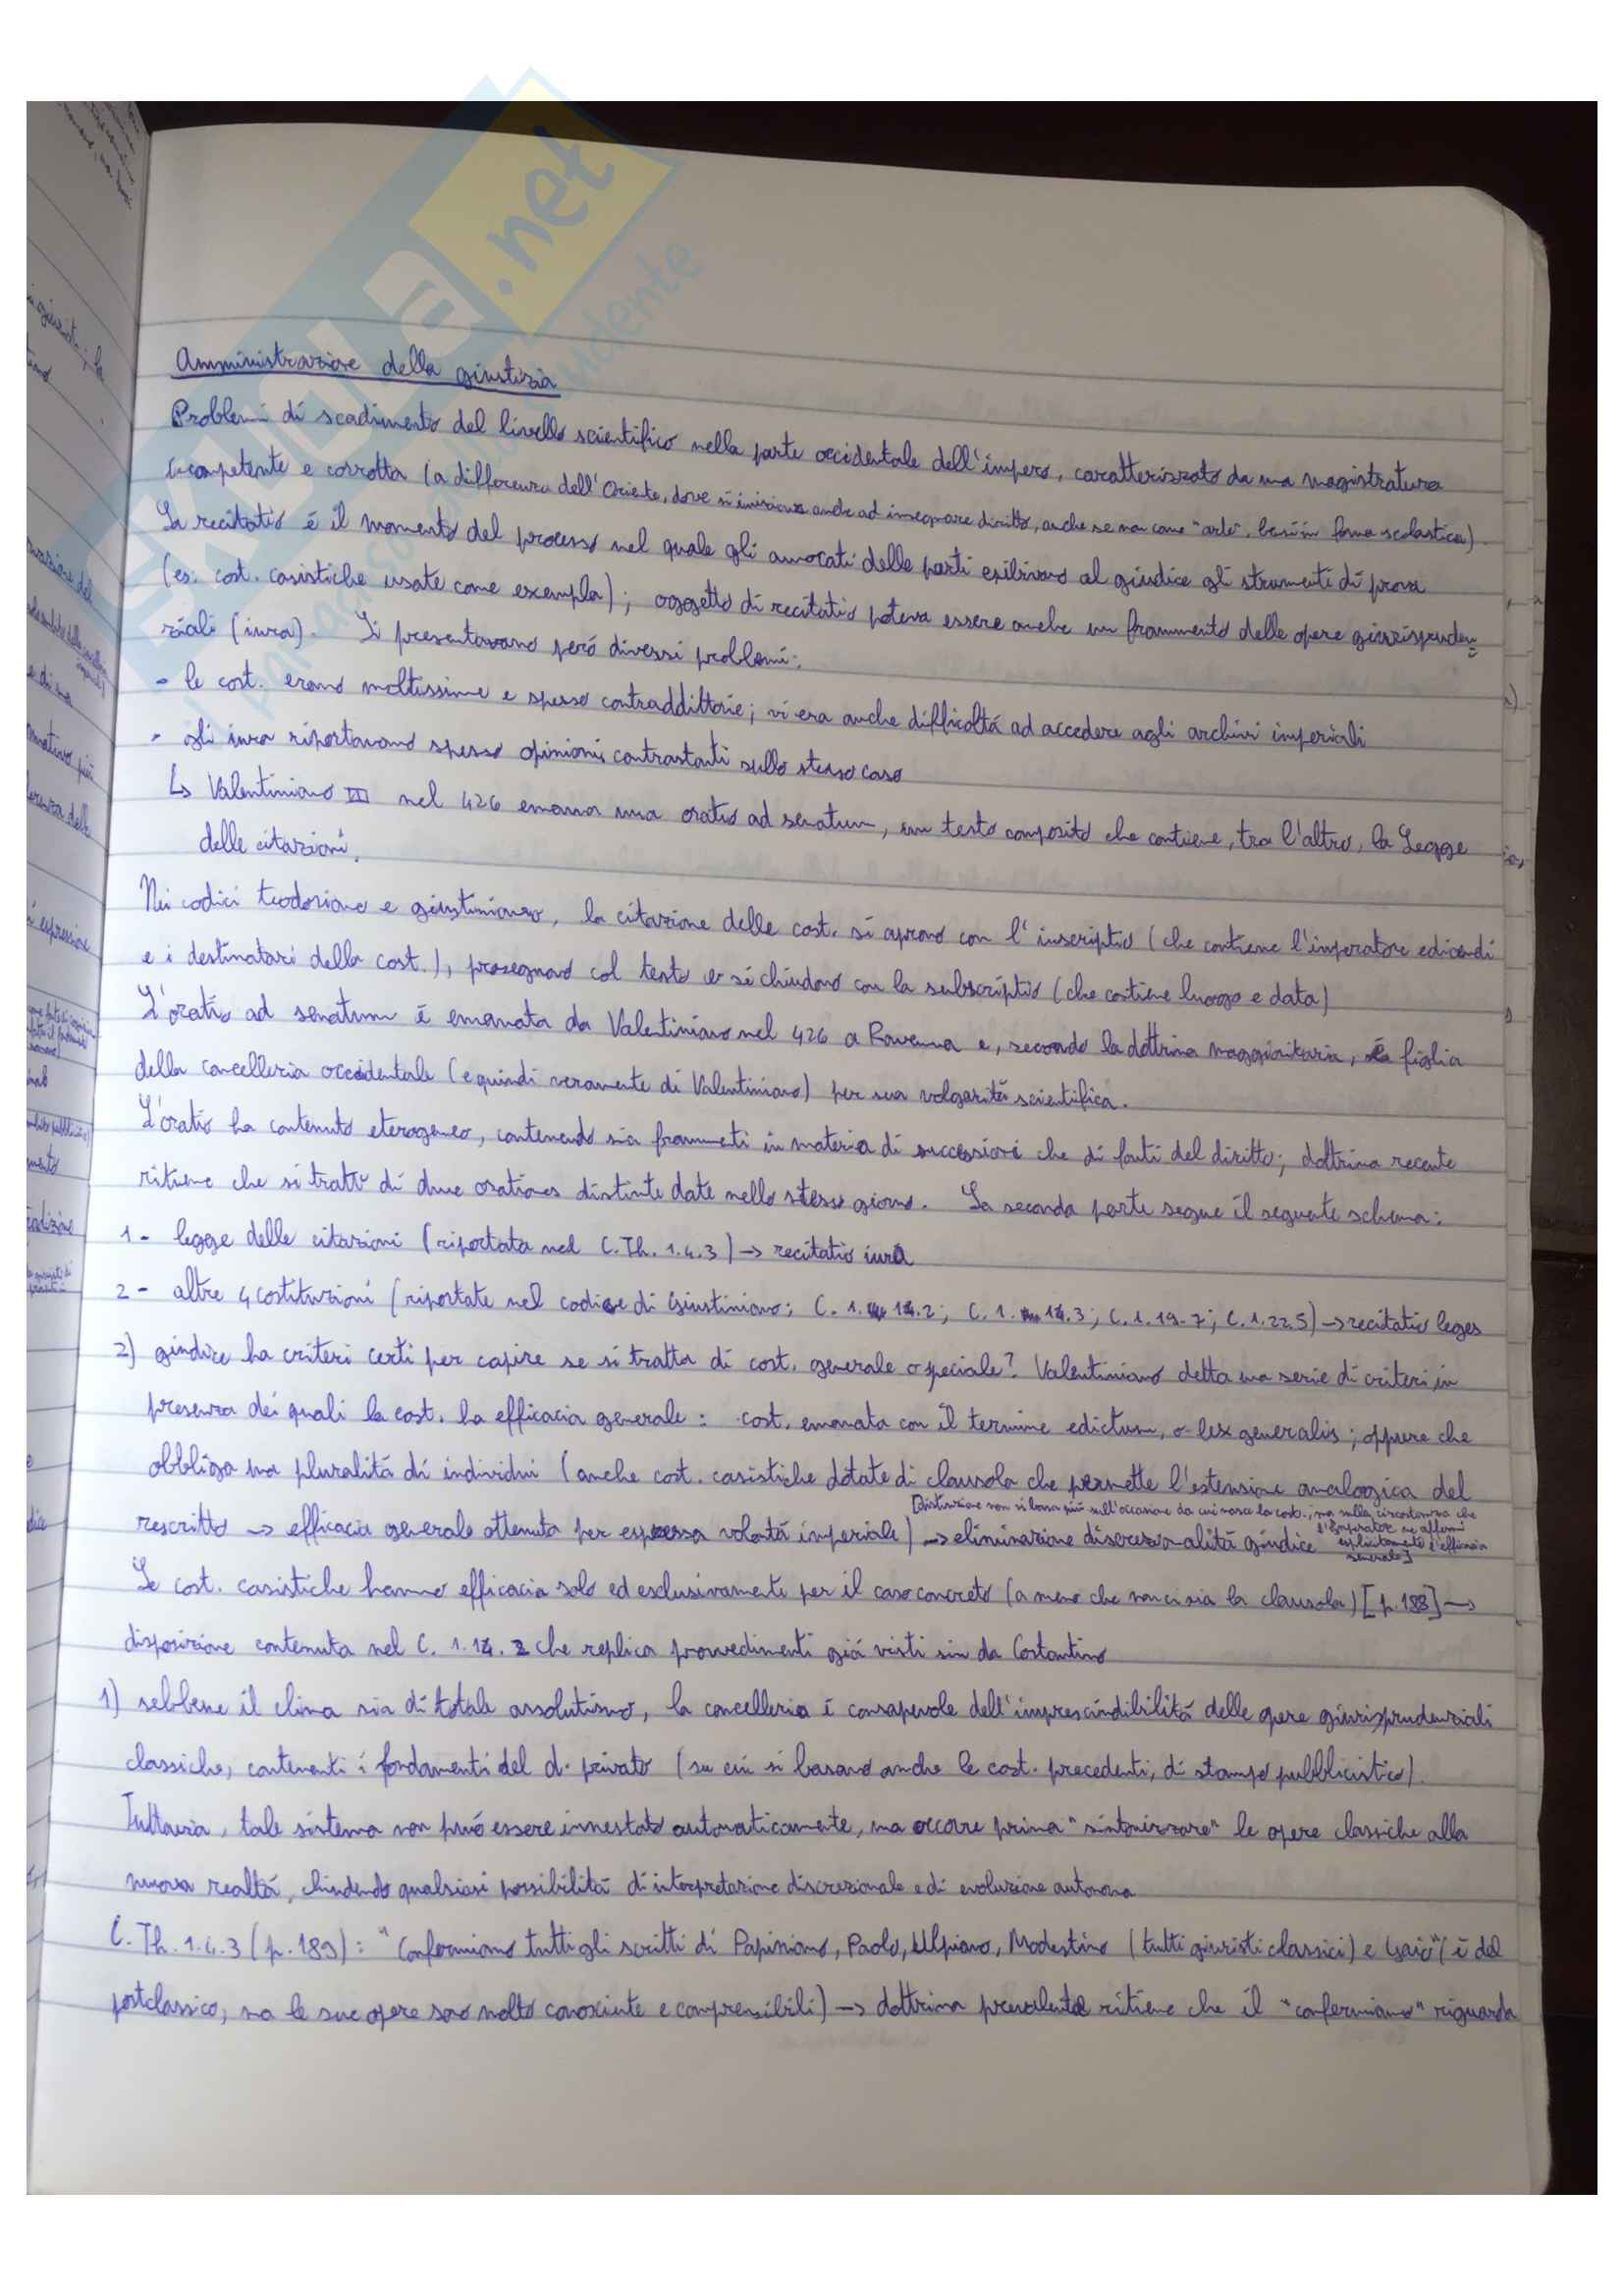 Amministrazione della giustizia
Problemi di scadimento del livello scientifico nella parte occidentale dell'impero, caratterizzato da una magistratura
incompetente e corrotta (a differenza dell'Oriente, dove si iniziava anche ad insegnare diritto, anche se non come "arte", bensì in forma scolastica).
La recitatio è il momento del processo nel quale gli avvocati delle parti esibivano al giudice gli strumenti di prova
(es. cost. casistiche usate come exempla); oggetto di recitatio poteva essere anche un frammento delle opere giurispruden=
ziali (iura). Si presentavano però diversi problemi:
- le cost. erano moltissime e spesso contraddittorie; vi era anche difficoltà ad accedere agli archivi imperiali
- gli iura riportavano spesso opinioni contrastanti sullo stesso caso
↳ Valentiniano III nel 426 emana una oratio ad senatum, un testo composito che contiene, tra l'altro, la Legge
delle citazioni.
Nei codici teodosiano e giustinianeo, la citazione delle cost. si aprono con l'inscriptio (che contiene l'imperatore edicendi
e i destinatari della cost.), proseguono col testo e si chiudono con la subscriptio (che contiene luogo e data)
L'oratio ad senatum è emanata da Valentiniano nel 426 a Ravenna e, secondo la dottrina maggioritaria, è figlia
della cancelleria occidentale (e quindi veramente di Valentiniano) per sua volgarità scientifica.
L'oratio ha contenuto eterogeneo, contenendo sia frammenti in materia di successioni che di fonti del diritto; dottrina recente
ritiene che si tratti di due orationes distinte date nello stesso giorno. La seconda parte segue il seguente schema:
1- legge delle citazioni (riportata nel C.Th. 1.4.3) → recitatio iura
2- altre 4 costituzioni (riportate nel codice di Giustiniano: C. 1.14.2; C. 1.14.3; C. 1.19.7; C.1.22.5) → recitatio leges
2) giudice ha criteri certi per capire se si tratta di cost. generale o speciale? Valentiniano detta una serie di criteri in
presenza dei quali la cost. ha efficacia generale: cost. emanata con il termine edictum, o lex generalis; oppure che
obbliga una pluralità di individui (anche cost. casistiche dotate di clausola che permette l'estensione analogica del
rescritto → efficacia generale ottenuta per espressa volontà imperiale) → eliminazione discrezionalità giudice
[Distinzione non si basa più sull'occasione da cui nasce la cost., ma sulla circostanza che
l'Imperator ne affermi
esplicitamente l'efficacia
generale]
Le cost. casistiche hanno efficacia solo ed esclusivamente per il caso concreto (a meno che non ci sia la clausola) [p.188] →
disposizione contenuta nel C. 1.14.2 che replica provvedimenti già visti sin da Costantino
1) sebbene il clima sia di totale assolutismo, la cancelleria è consapevole dell'imprescindibilità delle opere giurisprudenziali
classiche, contenenti i fondamenti del d. privato (su cui si basano anche le cost. precedenti, di stampo pubblicistico).
Tuttavia, tale sistema non può essere innestato automaticamente, ma occorre prima "sintonizzare" le opere classiche alla
nuova realtà, chiudendo qualsiasi possibilità di interpretazione discrezionale e di evoluzione autonoma
C.Th.1.4.3 (p.189): "Confermiamo tutti gli scritti di Papiniano, Paolo, Ulpiano, Modestino (tutti giuristi classici) e Gaio" (è del
postclassico, ma le sue opere sono molto conosciute e comprensibili) → dottrina prevalente ritiene che il "confermiamo" riguarda